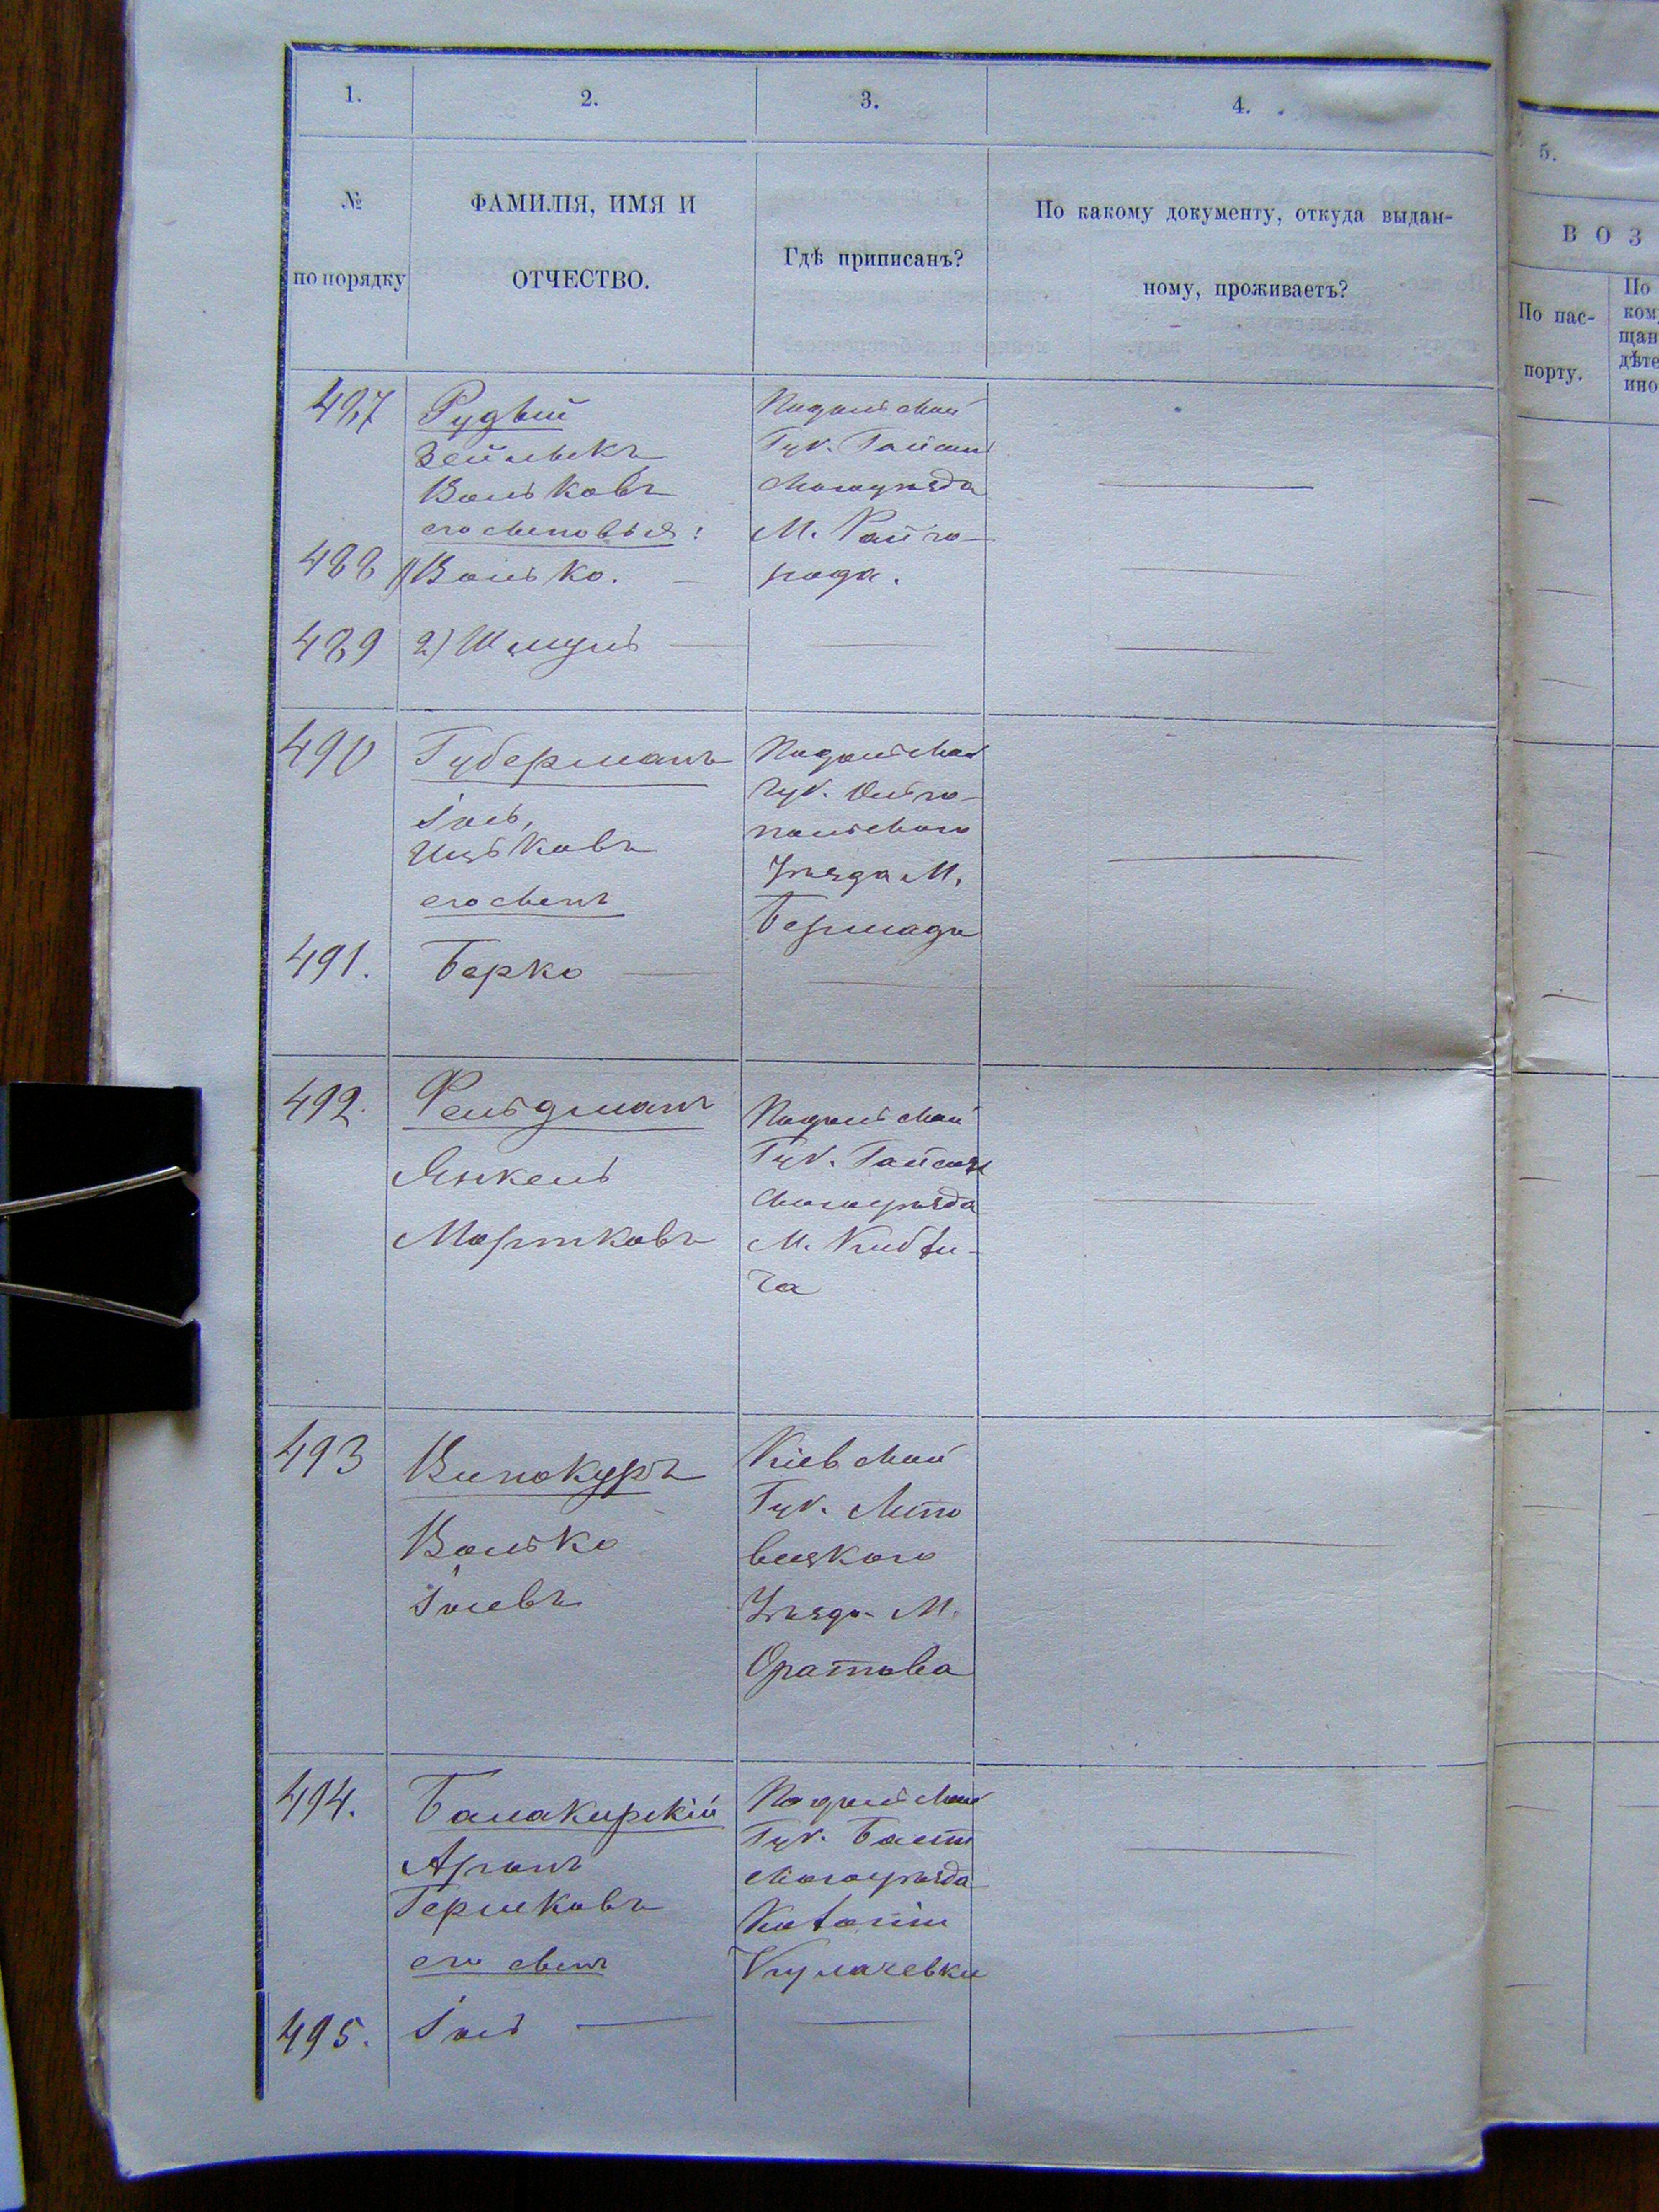 1. 2. 3. 4. 5.
№ по порядку
ФАМИЛІЯ, ИМЯ И
ОТЧЕСТВО.
Гдѣ приписанъ?
По какому документу, откуда выдан-
ному, проживаетъ?
В О З
По пас-
порту.
По
ком
щан
дѣте
ино
487 Рудый
Зейлыкъ
Вольковъ
его сыновья:
Подольской
Губ. Гайсин
скаго уѣзда
М. Райго-
рода.
488 1) Волько.
489 2) Шмуль
490 Губерманъ
Іоль,
Ицьковъ
его сынъ
Подольской
Губ. Ольго-
польскаго
Уѣзда М.
Бершади
491. Берко
492. Фельдманъ
Янкель
Мортковъ
Подольской
Губ. Гайсин
скаго уѣзда
М. Кибли-
ча
493 Винокуръ
Волько
Іолевъ
Кіевской
Губ. Липо
вецкаго
Уѣзда М.
Оратова
494. Балакирскій
Аронъ
Гершковъ
его сынъ
Подольской
Губ. Балт
скаго уѣзда
Колоніи
Кулачевки
495. Іоль